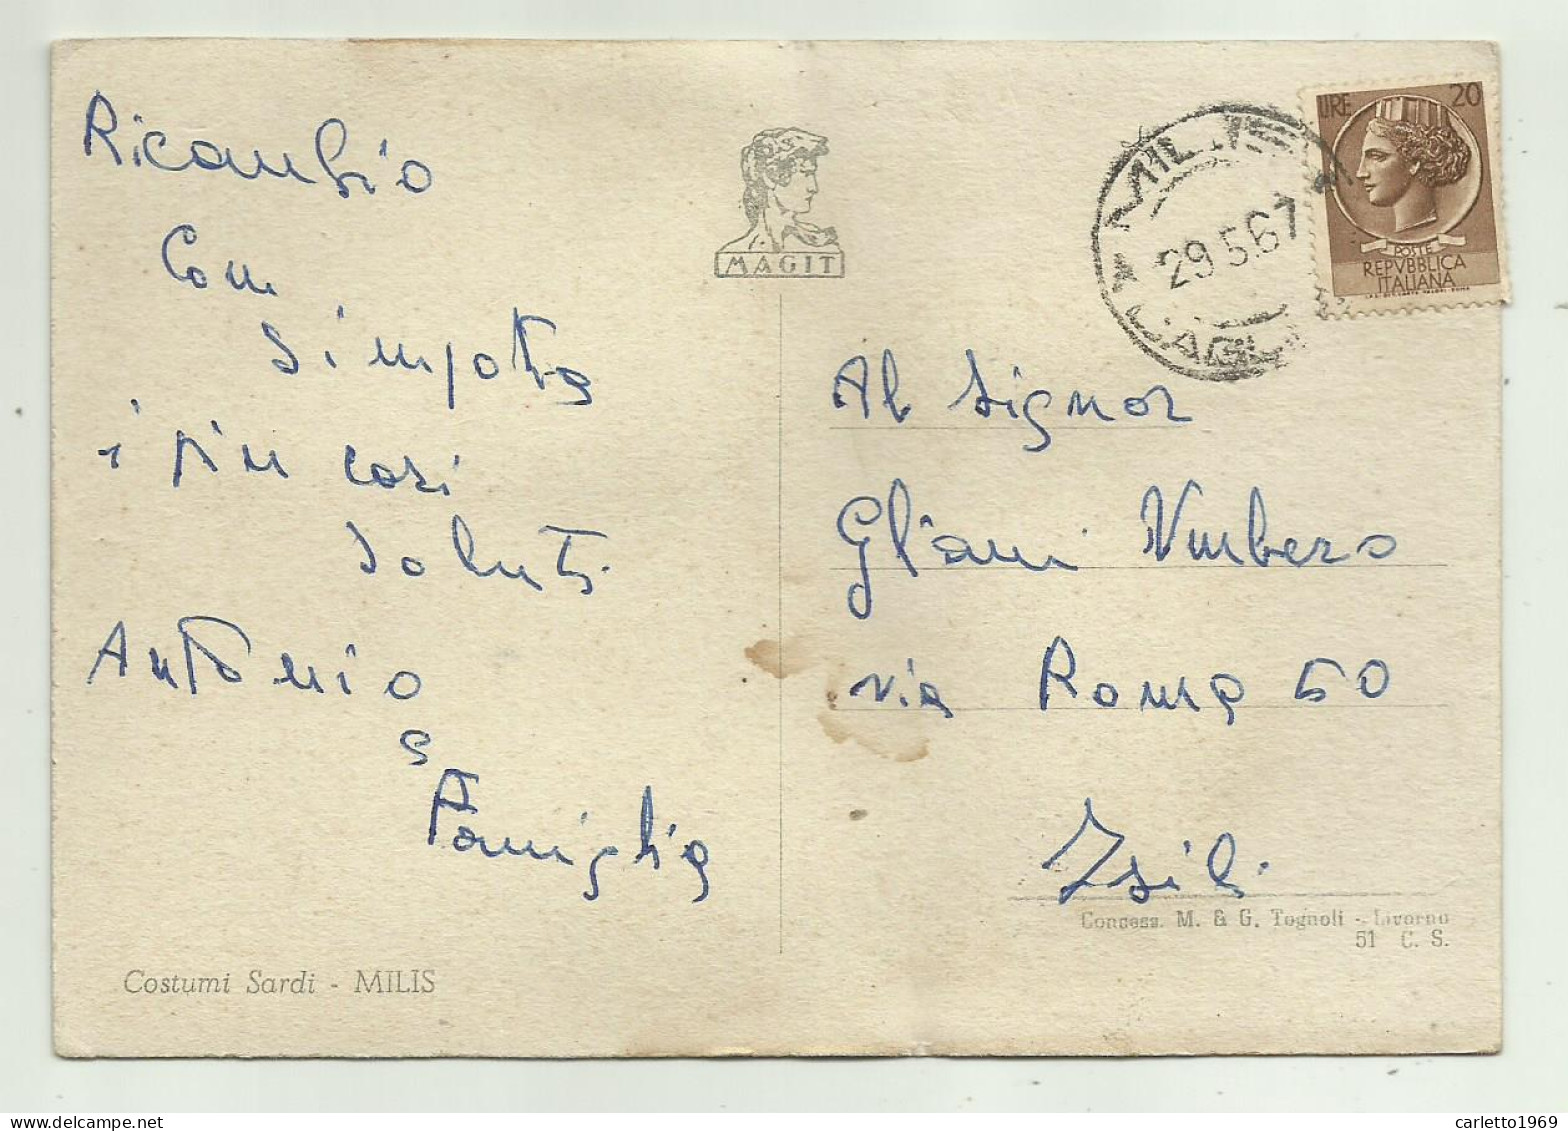 Ricambio
Con
simpatia
i più cari
saluti
Antonio
e
Famiglia
Costumi Sardi - MILIS
MAGIT
29.5.67
LIRE 20
POSTE
REPVBBLICA
ITALIANA
Al Signor
via Roma 50
Isili
Concess. M. & G. Tognoli - Livorno
51 C. S.
carletto1969